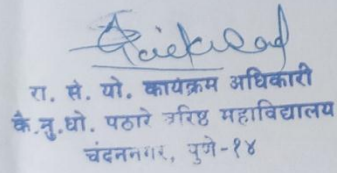 रा. से. यो. कार्यक्रम अधिकारी
कै.तु.धो. पठारे वरिष्ठ महाविद्यालय
चंदननगर, पुणे-१४